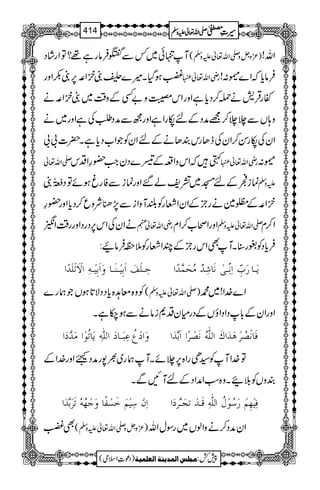 سیرتِ مصطفیٰ صلی اللہ تعالیٰ علیہ وسلم 414
اللہ! (عزوجل و صلی اللہ تعالیٰ علیہ وسلم) آپ تنہائی میں کس سے گفتگو فرما رہے تھے؟ تو ارشاد
فرمایا کہ اے میمونہ! رضی اللہ تعالیٰ عنہا غضب ہوگیا۔ میرے حلیف بنی خزاعہ پر بنی بکر اور
کفار قریش نے حملہ کر دیا ہے اور اس مصیبت و بے کسی کے وقت میں بنی خزاعہ نے
وہاں سے چلا چلا کر مجھے مدد کے لئے پکارا ہے اور مجھ سے مدد طلب کی ہے اور میں نے
ان کی پکار سن کر ان کی ڈھارس بندھانے کے لئے ان کو جواب دیا ہے۔ حضرت بی بی
میمونہ رضی اللہ تعالیٰ عنہا کہتی ہیں کہ اس واقعہ کے تیسرے دن جب حضور اقدس صلی اللہ تعالیٰ
علیہ وسلم نماز فجر کے لئے مسجد میں تشریف لے گئے اور نماز سے فارغ ہوئے تو دفعۃً بنی
خزاعہ کے مظلومین نے رجز کے ان اشعار کو بلند آواز سے پڑھنا شروع کر دیا اور حضور
اکرم صلی اللہ تعالیٰ علیہ وسلم اور اصحاب کرام رضی اللہ تعالیٰ عنہم نے ان کی اس پر درد اور رقت انگیز
فریاد کو بغور سنا۔ آپ بھی اس رجز کے چند اشعار کو ملاحظہ فرمائیے:
یَا رَبِّ اِنِّیْ نَاشِدٌ مُّحَمَّدًا حِلْفَ اَبِیْنَا وَاَبِیْہِ الْاَتْلَدًا
اے خدا! میں محمد (صلی اللہ تعالیٰ علیہ وسلم) کو وہ معاہدہ یاد دلاتا ہوں جو ہمارے
اور ان کے باپ داداؤں کے درمیان قدیم زمانے سے ہو چکا ہے۔
فَانْصُرْ ھَدَاکَ اللّٰہُ نَصْرًا اَبَّدًا وَادْعُ عِبَادَ اللّٰہِ یَاْتُوْا مَدَدًا
تو خدا آپ کو سیدھی راہ پر چلائے۔ آپ ہماری بھرپور مدد کیجئے اور خدا کے
بندوں کو بلائیے۔ وہ سب امداد کے لئے آئیں گے۔
فِیْھِمْ رَسُوْلُ اللّٰہِ قَدْ تَجَرَّدًا اِنْ سِیْمَ خَسْفًا وَجْھُہٗ تَرَبَّدًا
ان مدد کرنے والوں میں رسول اللہ (عزوجل و صلی اللہ تعالیٰ علیہ وسلم) بھی غضب
پیش کش: مجلس المدینۃ العلمیۃ (دعوتِ اسلامی)